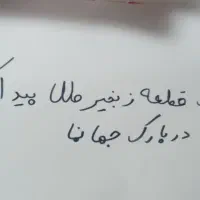 قطعه زنجیر طلا پیدا
در پارک جهان نما